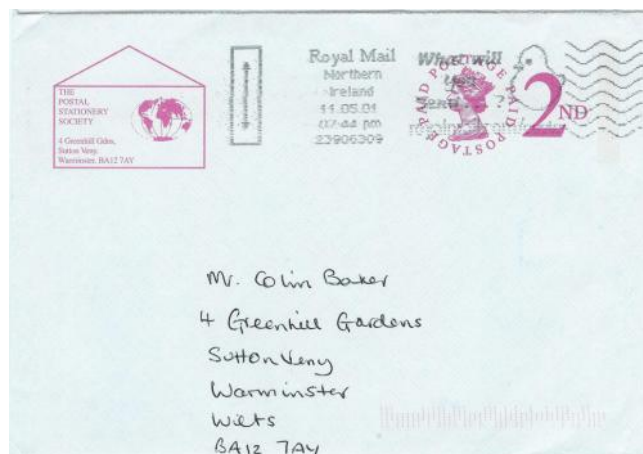 THE
POSTAL
STATIONERY
SOCIETY
4 Greenhill Gdns,
Sutton Veny.
Warminster. BA12 7AY
Royal Mail
Northern
Ireland
11.05.01
07-44 pm
23906309
What will
you
POSTAGE PAID POSTAGE PAID
2ND
Mr. Colin Baker
4 Greenhill Gardens
Sutton Veny
Warminster
Wilts
BA12 7AY